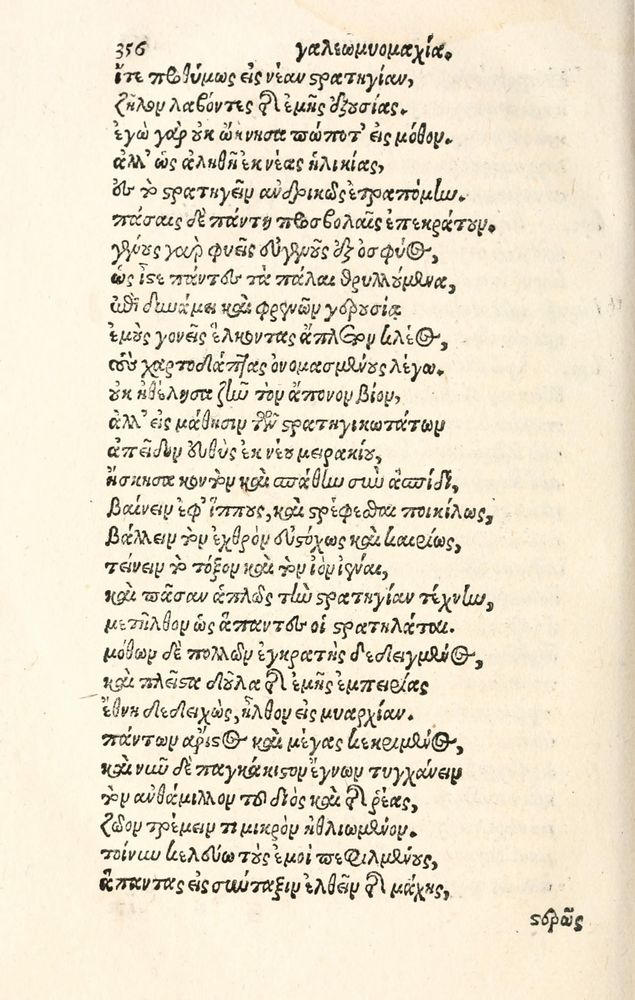 356 γαλεωμυομαχία.
ἴτε προθύμως εἰς νέαν στρατηγίαν,
ζῆλον λαβόντες τῆς ἐμῆς ἐξουσίας.
ἐγὼ γὰρ οὐκ ὤκνησα πώποτ' εἰς μόθον.
ἀλλ' ὡς ἀληθῆ ἐκ νέας ἡλικίας,
εὖ τὸ στρατηγεῖν ἀνδρικῶς ἐτραπόμην.
πάσαις δὲ πάντῃ προσβολαῖς ἐπεκράτουν.
γένους γὰρ φυεὶς εὐγενοῦς ἐξ ὀσφύος,
ὡς ἴστε πάντες τὰ πάλαι θρυλλούμενα,
ἐπὶ δυνάμει καὶ φρενῶν γερουσίᾳ
ἐμοὺς γονεῖς ἕλκοντας ἄπλετον κλέος,
τοὺς χαρτοδάπτας ὀνομασμένους λέγω.
οὐκ ἠθέλησα ζῶν τὸν ἄπονον βίον,
ἀλλ' εἰς μάθησιν τῶν στρατηγικωτάτων
ἀπεῖδον εὐθὺς ἐκ νέου μειρακίου,
ἤσκησα κοντὸν καὶ σπάθην σὺν ἀσπίδι,
βαίνειν ἐφ' ἵππους, καὶ στρέφεσθαι ποικίλως,
βάλλειν τὸν ἐχθρὸν εὐστόχως καὶ καιρίως,
τείνειν τὸ τόξον καὶ τὸν ἰὸν ἱέναι,
καὶ πᾶσαν ἁπλῶς τὴν στρατηγίαν τέχνην,
μετῆλθον ὡς ἅπαντες οἱ στρατηλάται.
μόθων δὲ πολλῶν ἐγκρατὴς δεδειγμένος,
καὶ πλεῖστα δοῦλα τῆς ἐμῆς ἐμπειρίας
ἔθνη δεδειχὼς, ἦλθον εἰς μυαρχίαν.
πάντων ἄριστος καὶ μέγας κεκριμένος,
καὶ νῦν δὲ παγκάκιστον ἔγνων τυγχάνειν
τὸν ἀνθάμιλλον τοῦ διὸς καὶ τῆς ῥέας,
ζῶον τρέμειν τι μικρὸν ἠθλιωμένον.
τοίνυν κελεύω τοὺς ἐμοὶ πεφιλμένους,
ἅπαντας εἰς σύνταξιν ἐλθεῖν τῆς μάχης,
στερρῶς